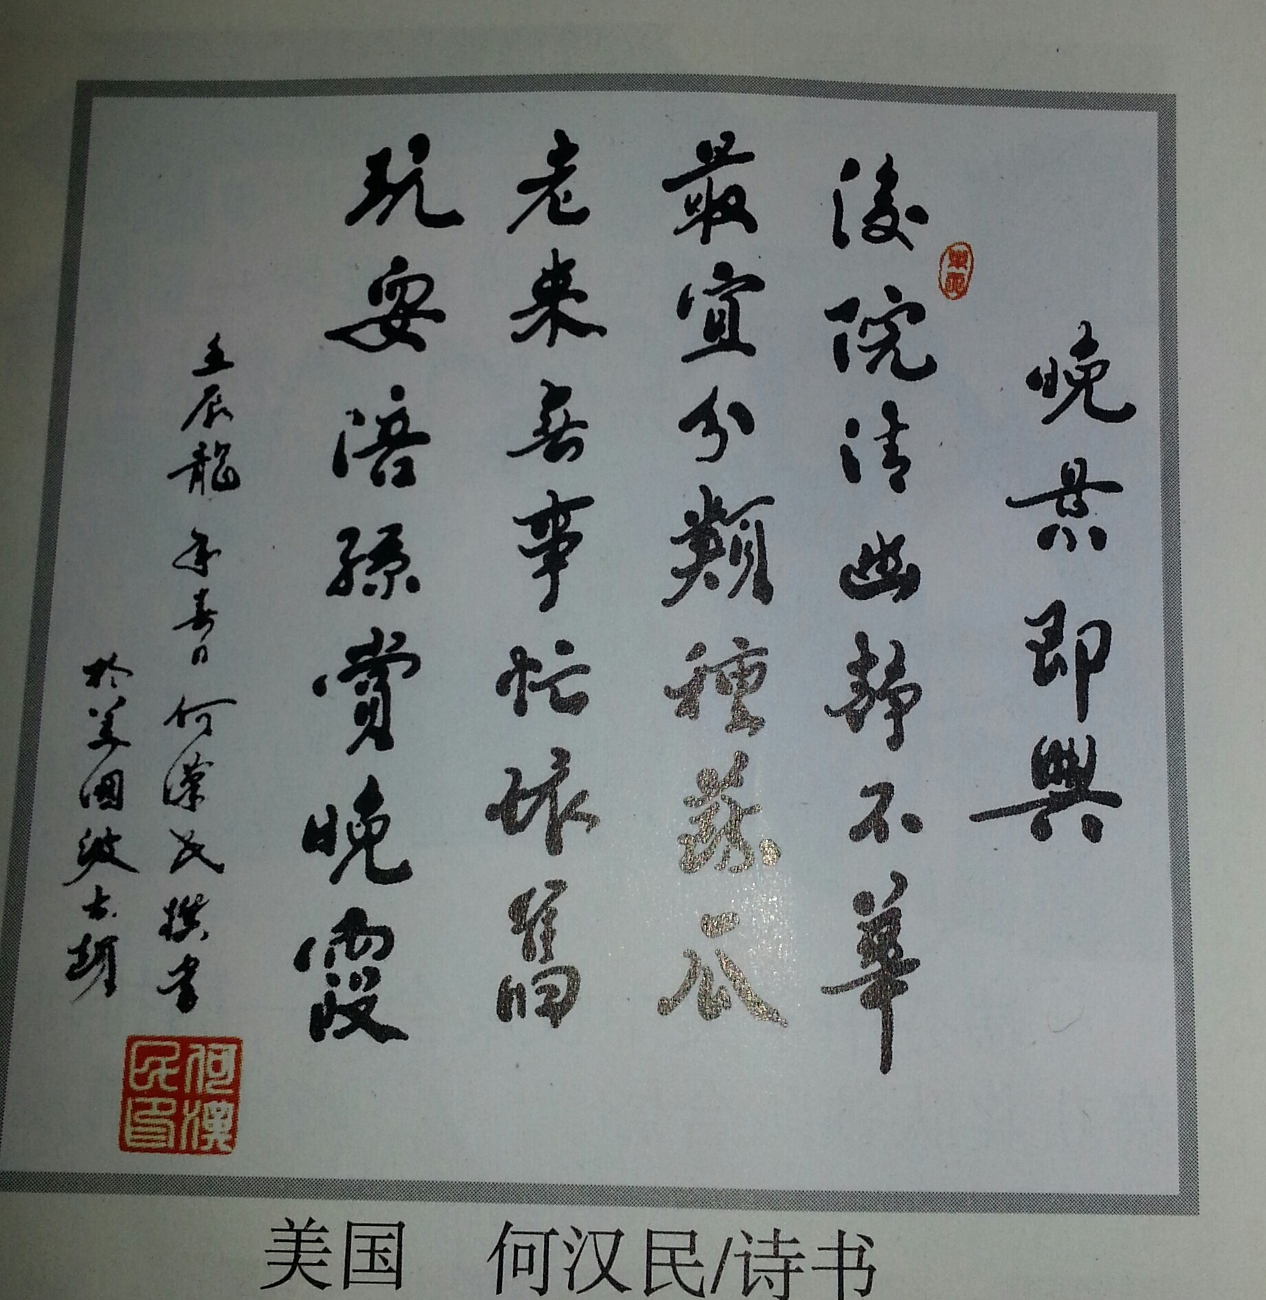 晚景即興
後院清幽靜不華
最宜分類種蔬瓜
老来無事忙依舊
玩耍陪孫賞晚霞
壬辰龍年春日何漢民撰書
於美國波士頓
何漢民印
美国 何汉民/诗书